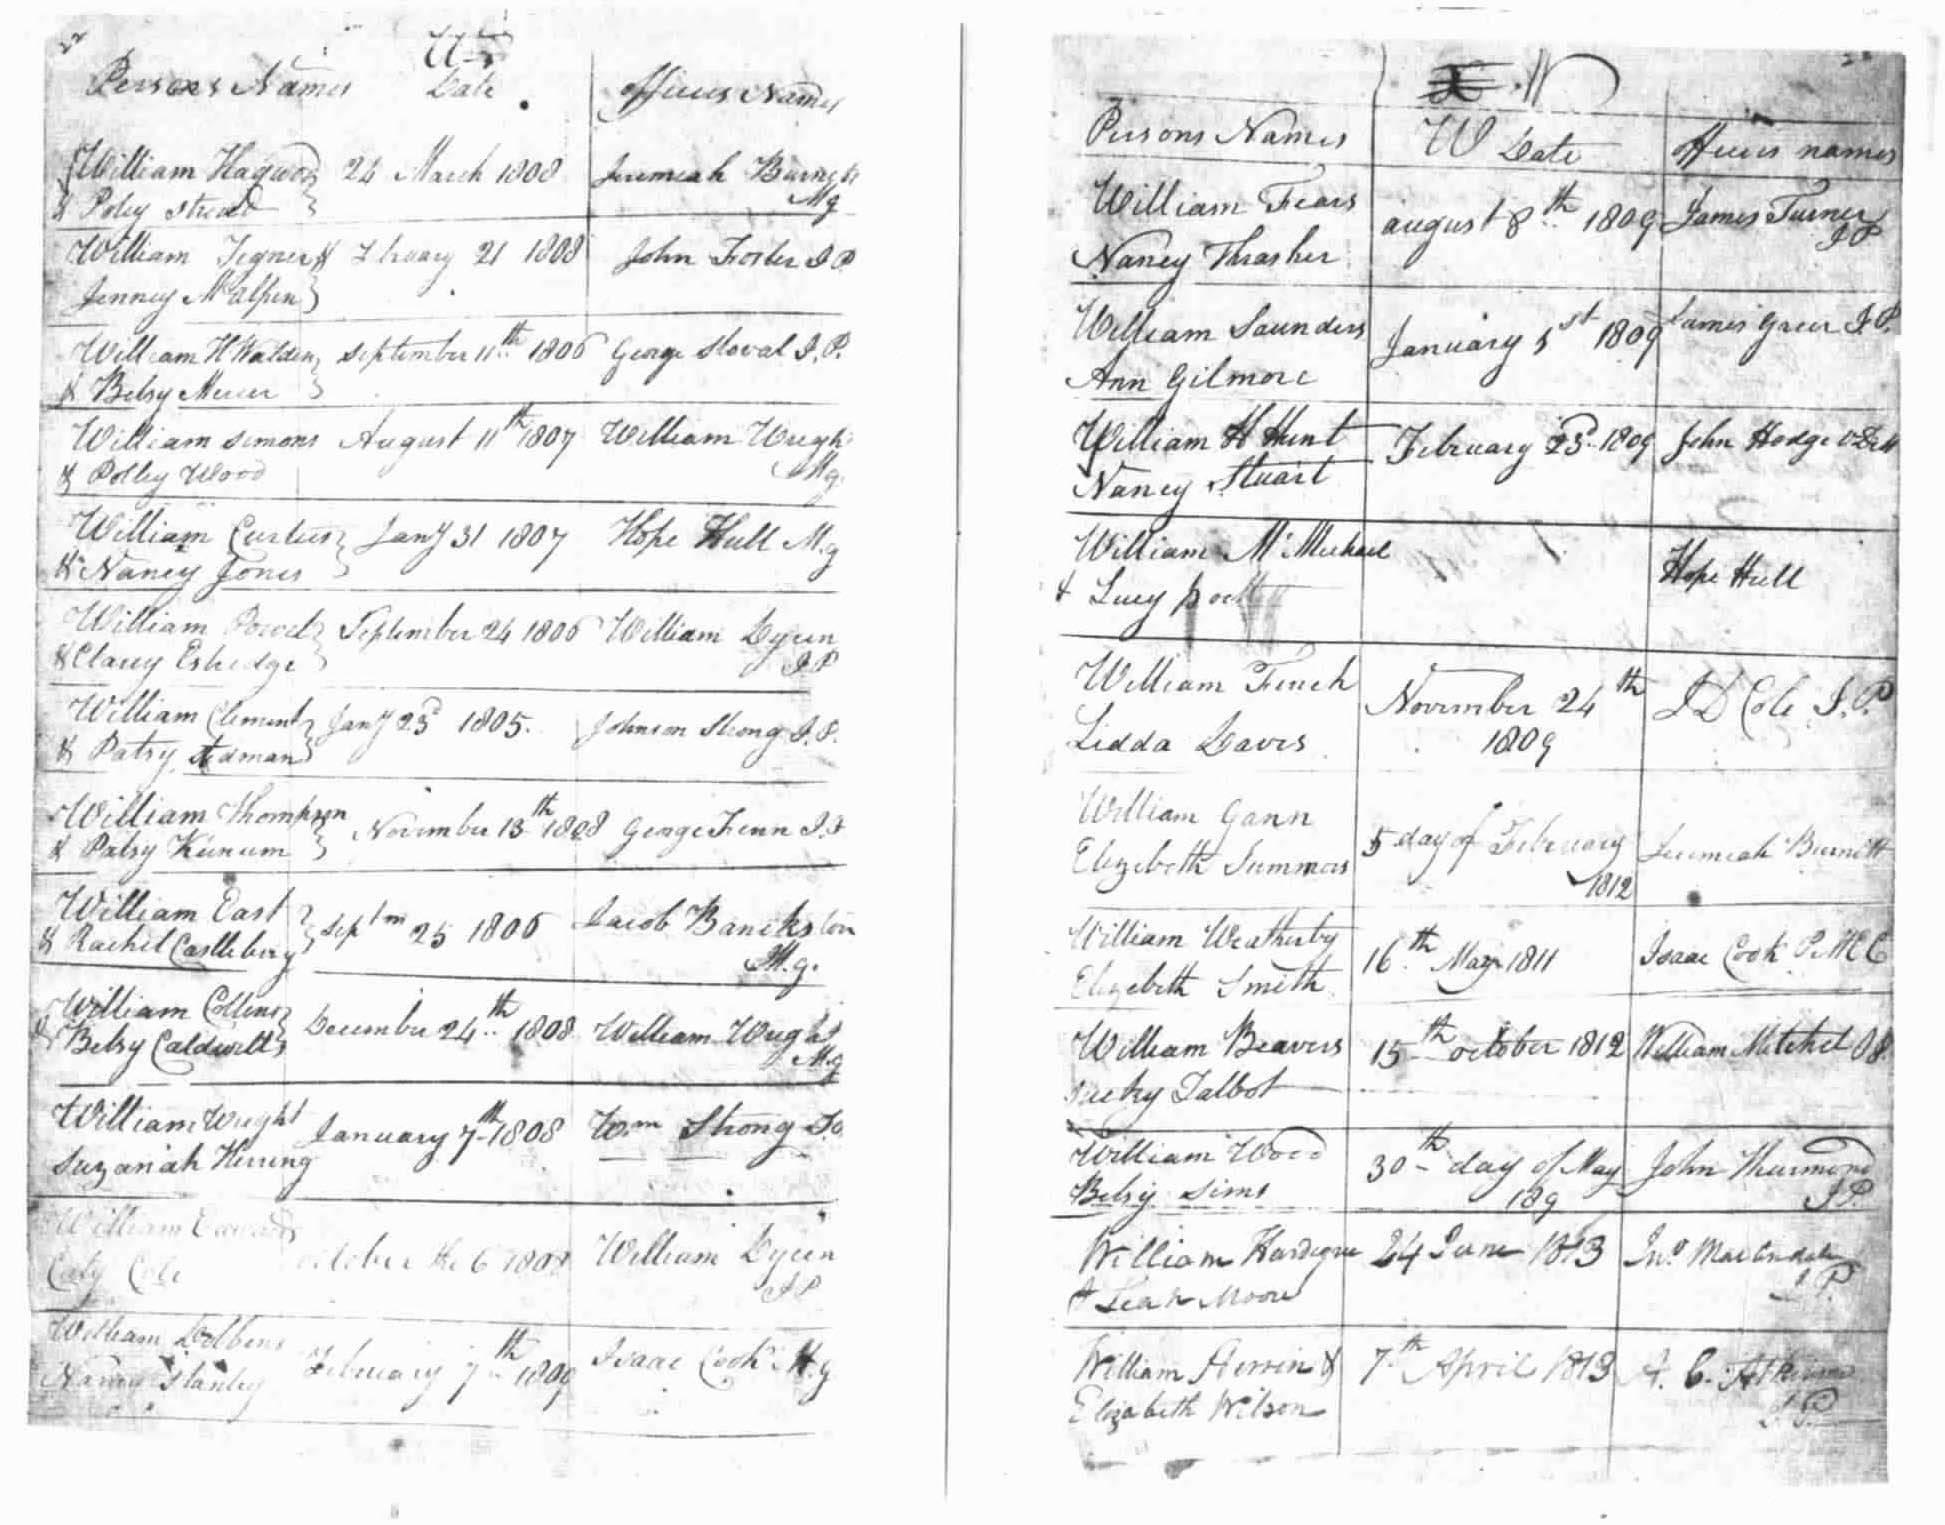 22
W
Persons Names Date Officers Names
William Haywood 24 March 1808 Jeremiah Burnett
& Poley Mg
William Tegner & February 21 1808 John Foster J P
Jenney McAlpin
William H Walden September 11th 1806 George Stoval J. P.
& Betsy Mercer
William Simons August 11th 1807 William Wright
& Polley Wood Mg.
William Curtus Jany 31 1807 Hope Hull M.g
& Nancy Jones
William Powel September 24 1806 William Dyen
& Clary Eskedge J P
William Clement Jany 23d 1805. Johnson Strong J. P.
& Patsy Redman
William Thompson November 13th 1808 George Fenn J. P
& Patsy
William East Septm 25 1806 Jacob Bankston
& Rachel Castlebery M.g.
William Collens December 24th 1808 William Wright
& Betsy Caldwell M.g
William Wright January 7th 1808 Wm Strong
Suzanah Herring
William Edwards October the 6 1808 William Dyen
Caty Cole J P
William Dolbens February 7th 1809 Isaac Cook M.g
Nancy Stanley
W
Persons Names W Date Officers names
William Fears august 8th 1809 James Turner
Nancy Thrasher J P
William Saunders January 5st 1809 James Greer J. P.
Ann Gilmore
William H Hunt February 23d 1809 John Hodge
Nancy Stuart
William McMichael Hope Hull
& Lucy
William Finch November 24th J D Cole J. P
Lidda Davis 1809
William Gann 5 day of February Jeremiah Burnett
Elizebeth Summors 1812
William Weatherby 16th May 1811 Isaac Cook P. M E C
Elizebeth Smith
William Beavers 15th october 1812 William Mitchel
Sucky Talbot
William Wood 30th day of May John Thurmond
Betsy Sims 189 J P.
William Hardigree 24 June 1813 Jno Martindale
& Leah Moore J. P.
William Herrin & 7th April 1813 A. C. Atkinson
Elizabeth Wilson J. P.